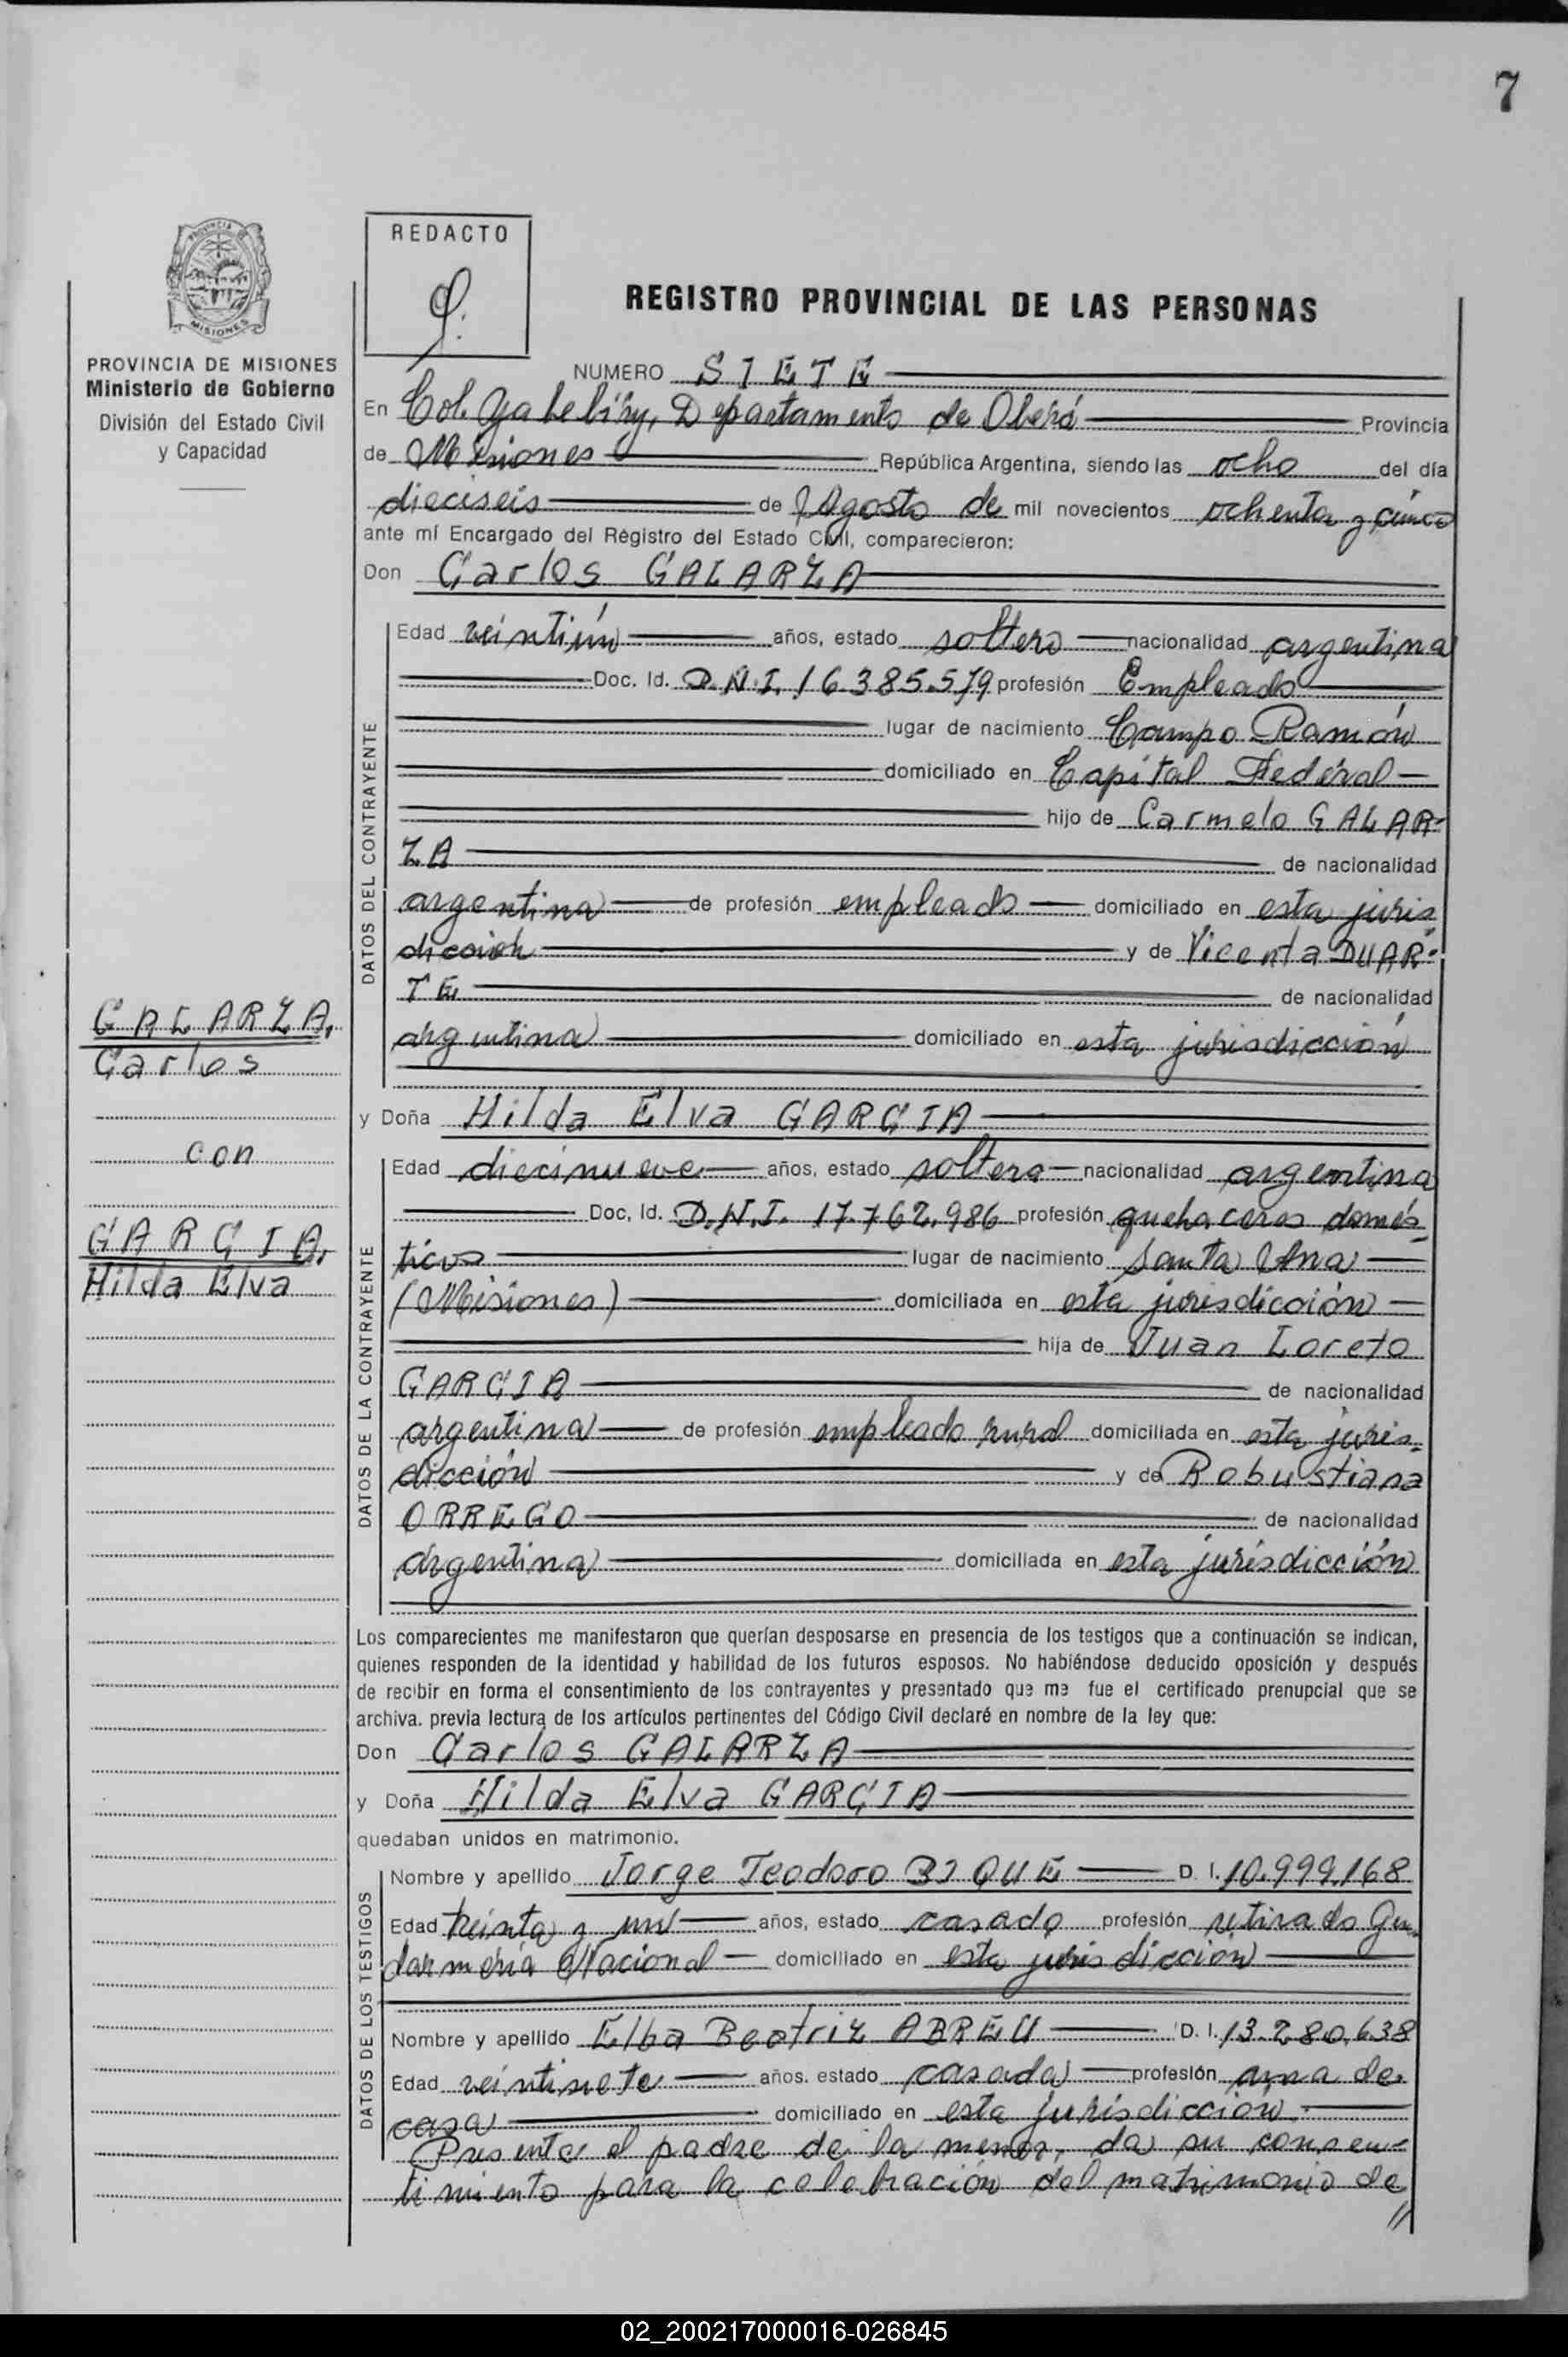 7
REDACTO
REGISTRO PROVINCIAL DE LAS PERSONAS
MISIONES
PROVINCIA DE MISIONES
Ministerio de Gobierno
División del Estado Civil
y Capacidad
NUMERO SIETE
En Col. Yabebiry, Departamento de Oberá Provincia
de Misiones República Argentina, siendo las ocho del día
dieciseis de Agosto de mil novecientos ochenta y cinco
ante mí Encargado del Registro del Estado Civil, comparecieron:
Don Carlos GALARZA
DATOS DEL CONTRAYENTE
Edad veintiún años, estado soltero nacionalidad argentina
Doc. Id. D.N.I. 16.385.579 profesión Empleado
lugar de nacimiento Campo Ramón
domiciliado en Capital Federal
hijo de Carmelo GALAR-
ZA de nacionalidad
argentina de profesión empleado domiciliado en esta juris
dicción y de Vicenta DUAR-
TE de nacionalidad
argentina domiciliado en esta jurisdicción
GALARZA,
Carlos
con
GARCIA,
Hilda Elva
y Doña Hilda Elva GARCIA
DATOS DE LA CONTRAYENTE
Edad diecinueve años, estado soltera nacionalidad argentina
Doc, Id. D.N.I. 17.762.986 profesión quehaceres domés-
ticos lugar de nacimiento Santa Ana
(Misiones) domiciliada en esta jurisdicción
hija de Juan Loreto
GARCIA de nacionalidad
argentina de profesión empleado rural domiciliada en esta juris-
dicción y de Robustiana
ORREGO de nacionalidad
argentina domiciliada en esta jurisdicción
Los comparecientes me manifestaron que querían desposarse en presencia de los testigos que a continuación se indican,
quienes responden de la identidad y habilidad de los futuros esposos. No habiéndose deducido oposición y después
de recibir en forma el consentimiento de los contrayentes y presentado que me fue el certificado prenupcial que se
archiva. previa lectura de los artículos pertinentes del Código Civil declaré en nombre de la ley que:
Don Carlos GALARZA
y Doña Hilda Elva GARCIA
quedaban unidos en matrimonio.
DATOS DE LOS TESTIGOS
Nombre y apellido Jorge Teodoro BIQUE D. I. 10.999.168
Edad treinta y un años, estado casado profesión retirado Gen
darmería Nacional domiciliado en esta jurisdicción
Nombre y apellido Elba Beatriz ABREU D. I. 13.280.638
Edad veintisiete años. estado casada profesión ama de
casa domiciliado en esta jurisdicción
Presente el padre de la menor, da su consen-
timiento para la celebración del matrimonio de
//
02_200217000016-026845